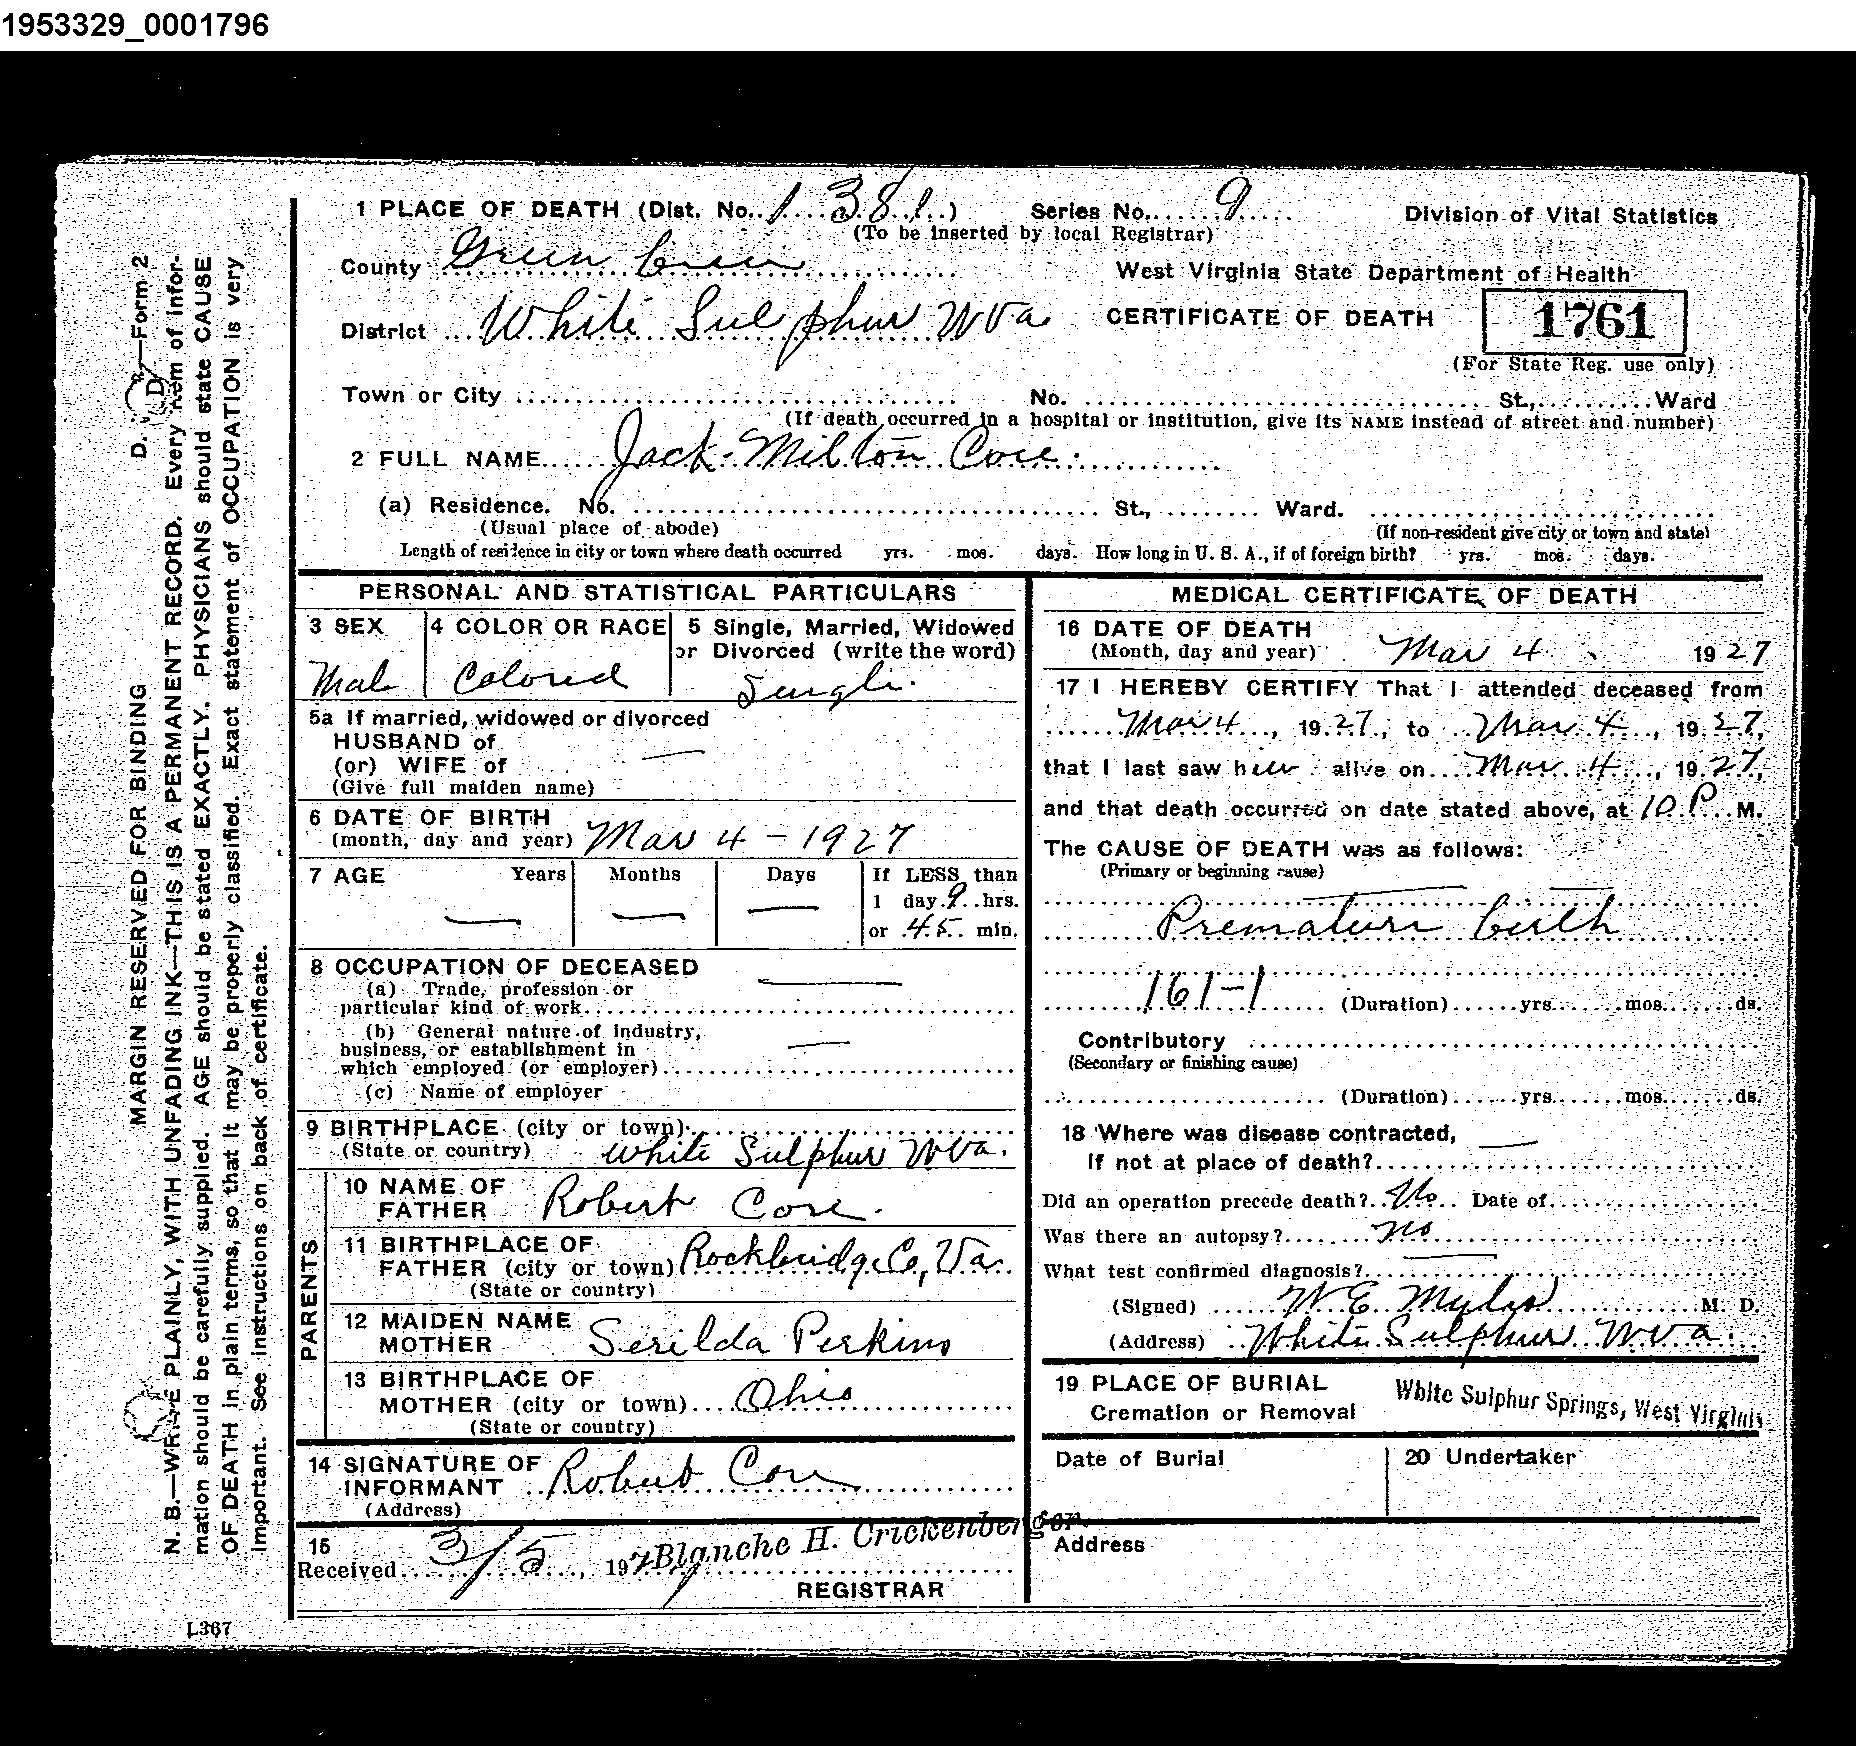 1953329_0001796
1 PLACE OF DEATH (Dist. No. 1381) Series No. 9 Division of Vital Statistics
(To be inserted by local Registrar)
County Green Brier West Virginia State Department of Health
District White Sulphur W Va CERTIFICATE OF DEATH 1761
(For State Reg. use only)
Town or City No. St., Ward
(If death occurred in a hospital or institution, give its NAME instead of street and number)
2 FULL NAME Jack Milton
(a) Residence. No. St., Ward.
(Usual place of abode) (If non-resident give city or town and state)
Length of residence in city or town where death occurred yrs. mos. days. How long in U. S. A., if of foreign birth? yrs. mos. days.
PERSONAL AND STATISTICAL PARTICULARS
3 SEX 4 COLOR OR RACE 5 Single, Married, Widowed
or Divorced (write the word)
Male Colored Single
5a If married, widowed or divorced
HUSBAND of
(or) WIFE of
(Give full maiden name)
6 DATE OF BIRTH
(month, day and year) Mar 4 - 1927
7 AGE Years Months Days If LESS than
1 day 9 hrs.
or 45 min.
8 OCCUPATION OF DECEASED
(a) Trade, profession or
particular kind of work
(b) General nature of industry,
business, or establishment in
which employed (or employer)
(c) Name of employer
9 BIRTHPLACE (city or town)
(State or country) White Sulphur W Va.
PARENTS
10 NAME OF
FATHER Robert
11 BIRTHPLACE OF
FATHER (city or town) Rockbridge Co, Va.
(State or country)
12 MAIDEN NAME
MOTHER Serilda Perkins
13 BIRTHPLACE OF
MOTHER (city or town) Ohio
(State or country)
14 SIGNATURE OF
INFORMANT Robert
(Address)
15
Received 3/5, 1927 Blanche H. Crickenberger
REGISTRAR
MEDICAL CERTIFICATE OF DEATH
16 DATE OF DEATH
(Month, day and year) Mar 4 1927
17 I HEREBY CERTIFY That I attended deceased from
Mar 4, 1927, to Mar 4, 1927,
that I last saw him alive on Mar 4, 1927,
and that death occurred on date stated above, at 10 P. M.
The CAUSE OF DEATH was as follows:
(Primary or beginning cause)
Premature birth
161-1 (Duration) yrs. mos. ds.
Contributory
(Secondary or finishing cause)
(Duration) yrs. mos. ds.
18 Where was disease contracted,
If not at place of death?
Did an operation precede death? No Date of
Was there an autopsy? no
What test confirmed diagnosis?
(Signed) W E Myles M. D.
(Address) White Sulphur W Va.
19 PLACE OF BURIAL White Sulphur Springs, West Virginia
Cremation or Removal
Date of Burial 20 Undertaker
Address
D. D.—Form 2
MARGIN RESERVED FOR BINDING
N. B.—WRITE PLAINLY, WITH UNFADING INK—THIS IS A PERMANENT RECORD. Every item of infor-
mation should be carefully supplied. AGE should be stated EXACTLY. PHYSICIANS should state CAUSE
OF DEATH in plain terms, so that it may be properly classified. Exact statement of OCCUPATION is very
important. See instructions on back of certificate.
L367